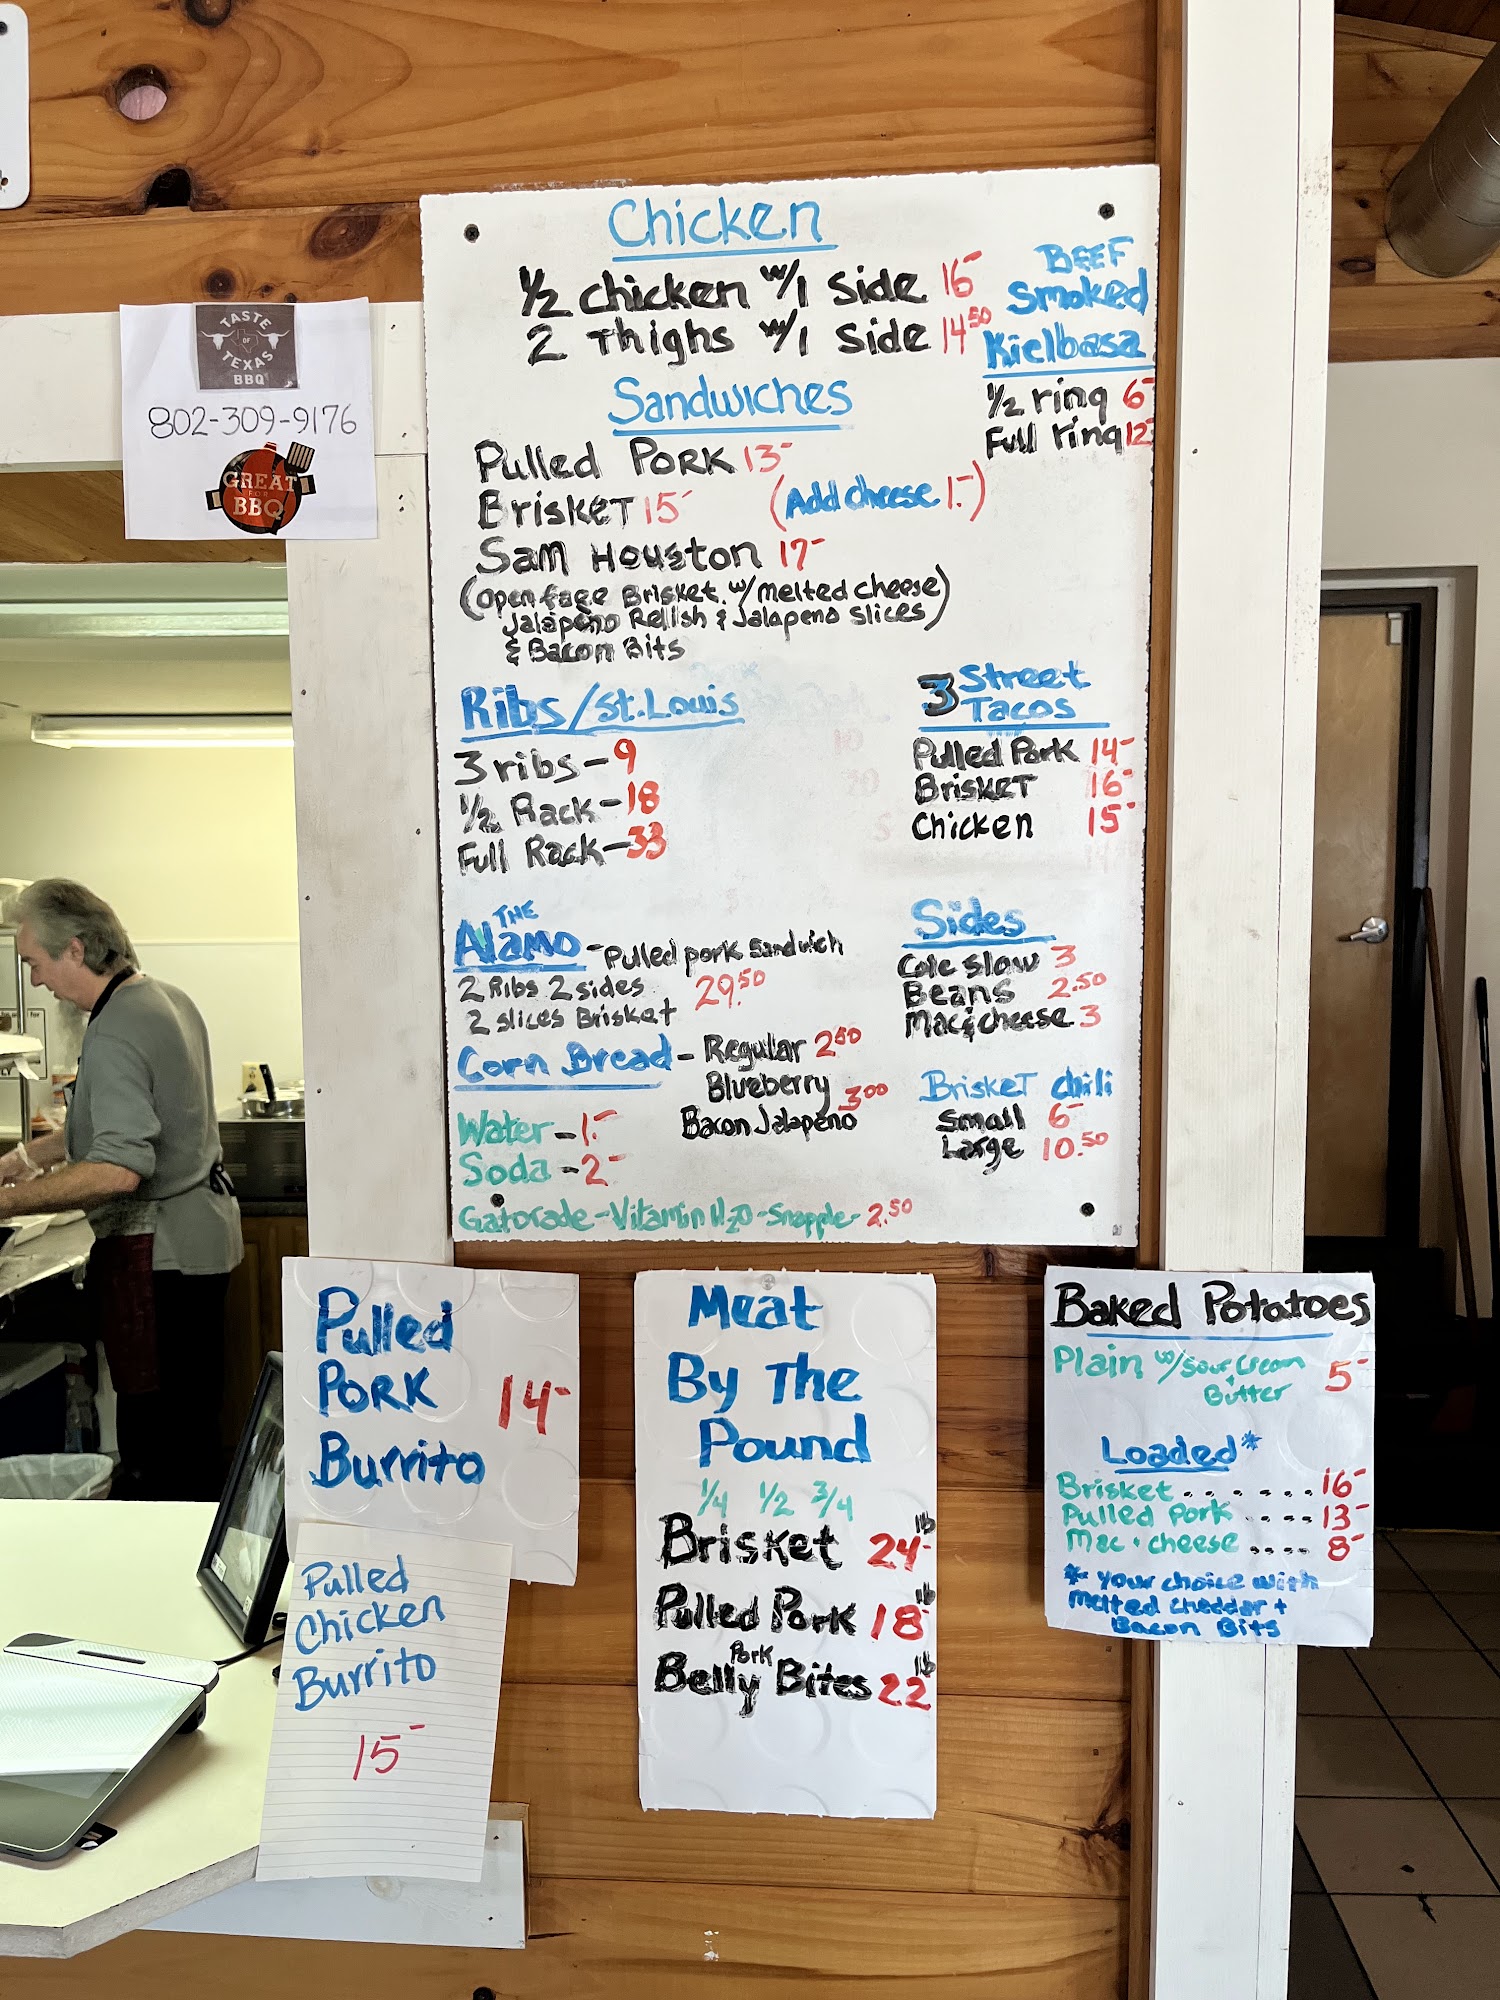 TASTE
OF
TEXAS
BBQ
802-309-9176
GREAT
FOR
BBQ
Chicken
1/2 chicken w/1 side 16-
2 Thighs w/1 side 14.50
BEEF
Smoked
Kielbasa
1/2 ring 6-
Full ring 12-
Sandwiches
Pulled Pork 13-
Brisket 15-
(Add cheese 1.-)
Sam Houston 17-
(open face Brisket w/ melted cheese
Jalapeño Relish & Jalapeno slices)
& Bacon Bits
Ribs/St. Louis
3 ribs - 9
1/2 Rack - 18
Full Rack - 33
3 Street
Tacos
Pulled Pork 14-
Brisket 16-
Chicken 15-
THE
Alamo - Pulled pork sandwich
2 Ribs 2 sides
2 slices Brisket 29.50
Sides
Cole slow 3
Beans 2.50
Mac & cheese 3
Corn Bread - Regular 2.50
Blueberry
Bacon Jalapeño 3.00
Brisket chili
Small 6-
Large 10.50
Water - 1.-
Soda - 2-
Gatorade - Vitamin H2O - Snapple - 2.50
Pulled
Pork
Burrito 14-
Pulled
Chicken
Burrito
15-
Meat
By The
Pound
1/4 1/2 3/4
Brisket 24- lb
Pulled Pork 18- lb
Pork
Belly Bites 22 lb
Baked Potatoes
Plain w/ sour cream
+
Butter 5-
Loaded*
Brisket ...... 16-
Pulled Pork .... 13-
Mac + cheese .... 8-
* your choice with
melted cheddar +
Bacon Bits